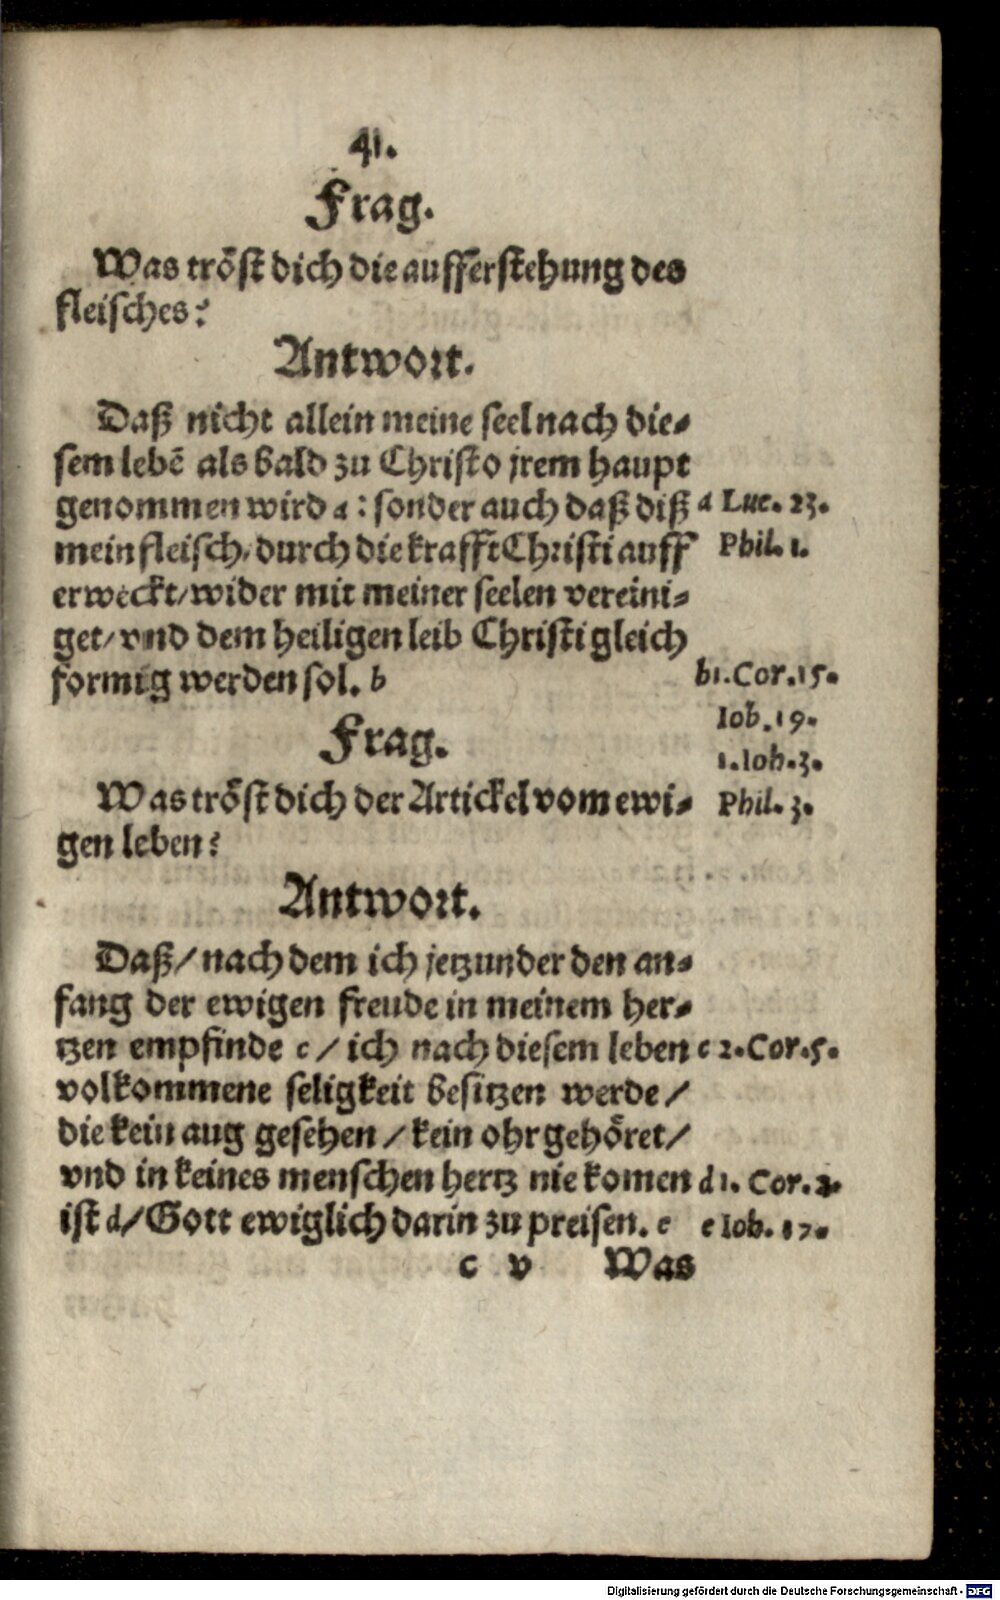 41.
Frag.
Was tröst dich die aufferstehung des
fleisches?
Antwort.
Daß nicht allein meine seel nach die-
sem lebē als bald zu Christo jrem haupt
genommen wird a: sonder auch daß diß a Luc. 23.
mein fleisch/ durch die krafft Christi auff Phil. 1.
erweckt/ wider mit meiner seelen vereini-
get/ vnd dem heiligen leib Christi gleich
formig werden sol. b b 1. Cor. 15.
Iob. 19.
Frag.
1. Ioh. 3.
Was tröst dich der Artickel vom ewi- Phil. 3.
gen leben?
Antwort.
Daß/ nach dem ich jetzunder den an-
fang der ewigen freude in meinem her-
tzen empfinde c/ ich nach diesem leben c 2. Cor. 5.
volkommene seligkeit besitzen werde/
die kein aug gesehen/ kein ohr gehöret/
vnd in keines menschen hertz nie komen d 1. Cor. 2.
ist d/ Gott ewiglich darin zu preisen. e e Ioh. 17.
c v Was
Digitalisierung gefördert durch die Deutsche Forschungsgemeinschaft - DFG